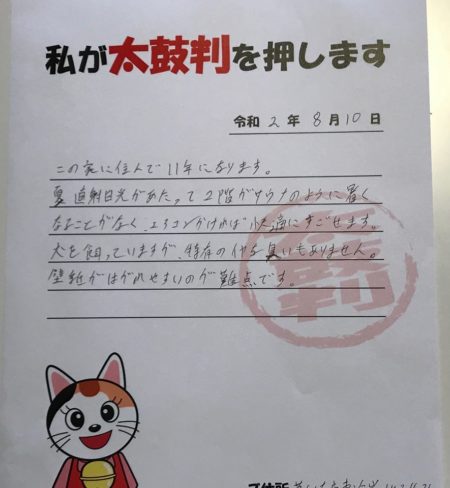 私が太鼓判を押します
令和 2 年 8 月 10 日
この家に住んで11年になります。
夏 直射日光があたって2階がサウナのように暑く
なることがなく、エアコンかければ快適にすごせます。
犬を飼っていますが、特有のイヤな臭いもありません。
壁紙がはがれやすいのが難点です。
太鼓判
ご住所